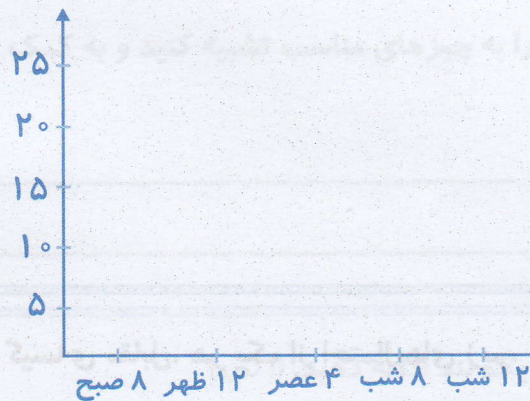 ۲۵
۲۰
۱۵
۱۰
۵
۸ صبح ۱۲ ظهر ۴ عصر ۸ شب ۱۲ شب